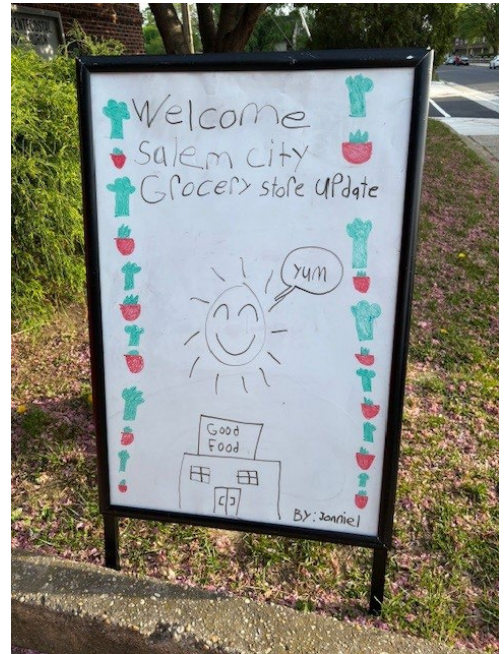 Welcome
Salem city
Grocery store update
Yum
Good
Food
BY: Jonniel